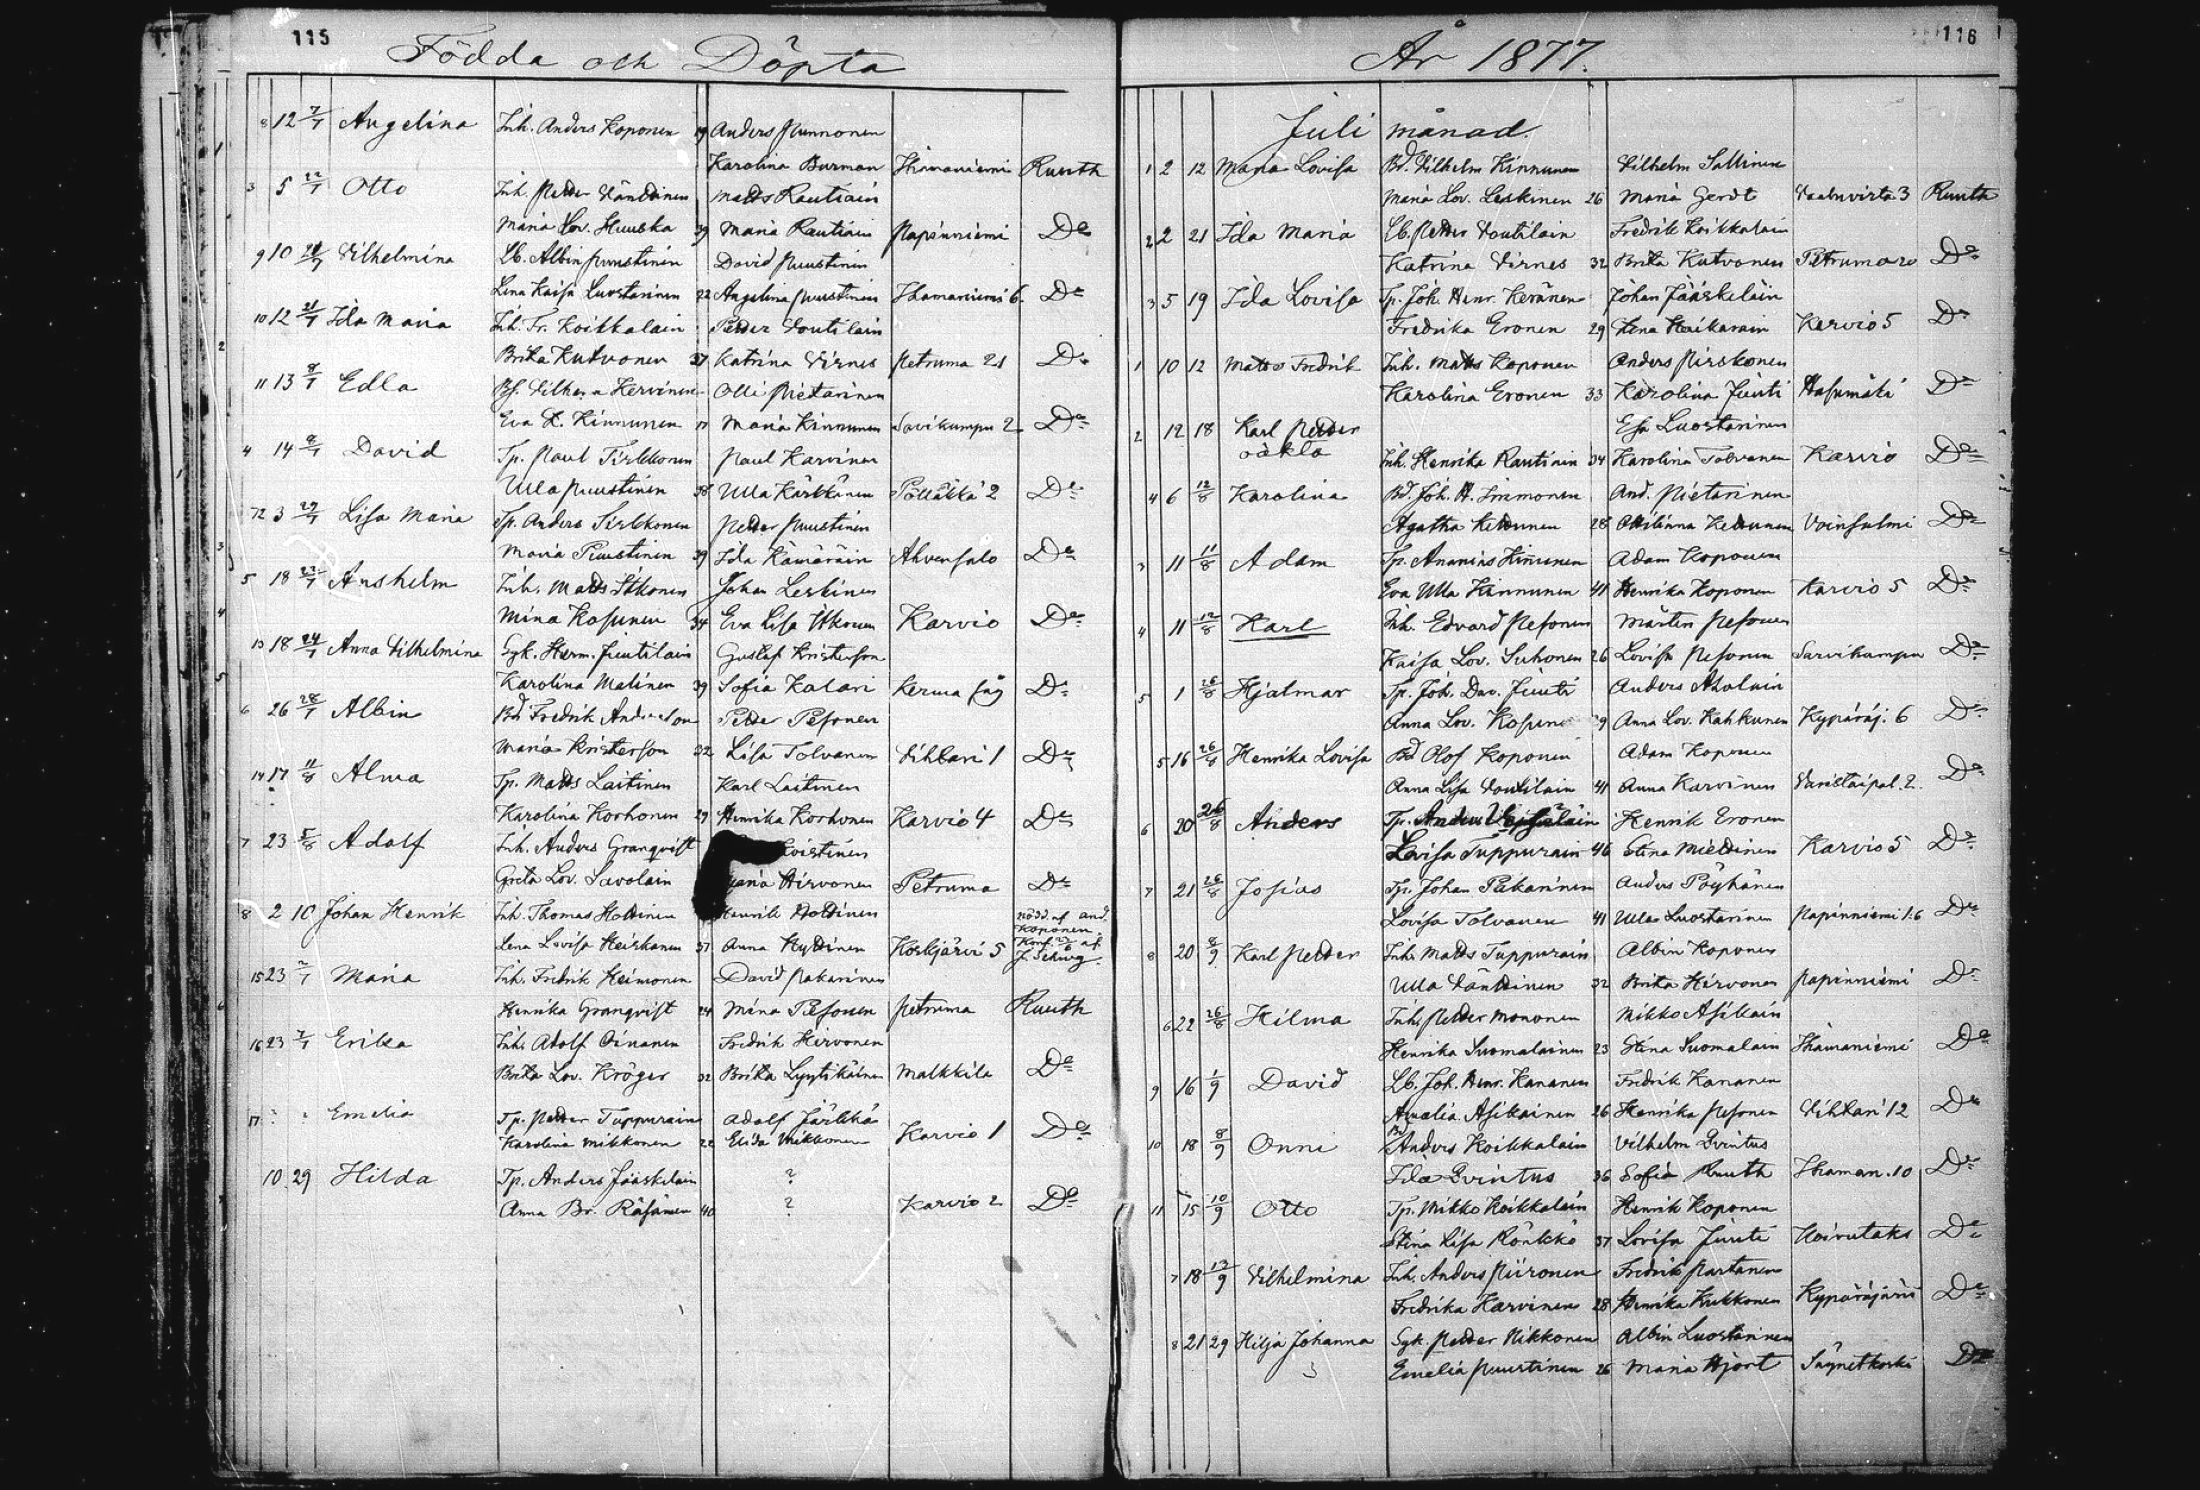 115
Födda och Döpta
8 12 7/7 Angelina Inh. Anders Koponen 19 Anders Punnonen
Karolina Burman Ihamaniemi Ruuth
3 5 22/7 Otto Inh. Petter Väntinen Matts Rautiain
Maria Lov. Huuska 39 Maria Rautiain Papinniemi Do
9 10 Vilhelmina Lb. Albin Puustinen David Puustinen
Lena Kaisa Luostarinen 22 Angelina Puustinen Ihamaniemi 6 Do
10 12 21/7 Ida Maria Inh. Fr. Koikkalain Petter Voutilain
Brita Kutvonen 37 Katrina Virnes Petruma 21 Do
11 13 8/7 Edla Kervinen Olli Pietarinen
Eva K. Kinnunen 17 Maria Kinnunen Savikumpu 2 Do
4 14 8/7 David Tp. Paul Tirkkonen Paul Karvinen
Ulla Puustinen 38 Ulla Kärkkänen Pölläkkä 2 Do
12 3 29/7 Lisa Maria Tp. Anders Sirkkonen Petter Puustinen
Maria Puustinen 39 Ida Kämäräin Ahvensalo Do
5 18 22/7 Anshelm Inh. Matts Itkonen Johan Leskinen
Mina Kosunen 34 Eva Lisa Itkonen Karvio Do
13 18 24/7 Anna Vilhelmina Sgk. Herm. Juutilain Gustaf Kristerson
Karolina Malinen 39 Sofia Kalari Kerma såg Do
6 26 28/7 Albin Bd Fredrik Anderson Petter Pesonen
Maria Kristerson 32 Lisa Tolvanen Vihtari 1 Do
14 17 11/8 Alma Tp. Matts Laitinen Karl Laitinen
Karolina Korhonen 29 Henrika Korhonen Karvio 4 Do
7 23 5/8 Adolf Inh. Anders Granqvist Loistinen
Greta Lov. Savolain Maria Hirvonen Petruma Do
8 2 10 Johan Henrik Inh. Thomas Hottinen Henrik Hottinen nödd. af And.
Koponen.
Lena Lovisa Heiskanen 37 Anna Hyttinen Koskjärvi 5 Konf. af
J. Schwg.
15 23 2/7 Maria Inh. Fredrik Heimonen David Pakarinen
Henrika Granqvist 24 Mina Pesonen Petruma Ruuth
16 23 7/7 Erika Inh. Adolf Oinanen Fredrik Hirvonen
Brita Lov. Kröger 32 Brita Lyytikäinen Malkkila Do
17 Emelia Tp. Petter Tuppurain Adolf Järkkä
Karolina Mikkonen 22 Elida Mikkonen Karvio 1 Do
10 29 Hilda Tp. Anders Jääskelain ?
Anna Br. Räsänen 40 ? Karvio 2 Do
116
År 1877.
Juli månad.
1 2 12 Maria Lovisa Bd. Vilhelm Kinnunen Vilhelm Sallinen
Maria Lov. Leskinen 26 Maria Gerdt Vaaluvirta 3 Ruuth
2 2 21 Ida Maria Lb. Petter Voutilain Fredrik Koikkalain
Katrina Virnes 32 Brita Kutvonen Petruma 20 Do
3 5 19 Ida Lovisa Tp. Joh. Henr. Keränen Johan Jääskeläin
Fredrika Eronen 29 Lena Haikarain Karvio 5 Do
1 10 12 Matts Fredrik Inh. Matts Koponen Anders Pirskonen
Karolina Eronen 33 Karolina Juuti Hasumäki Do
2 12 18 Karl Petter Esa Luostarinen
oäkta Inh. Henrika Rautiain 34 Karolina Tolvanen Karvio Do
4 6 12/8 Karolina Bd. Joh. H. Immonen And. Pietarinen
Agatha Kettunen 28 Ottilinna Kettunen Voinsalmi Do
3 11 11/8 Adam Tp. Ananias Kinnunen Adam Koponen
Eva Ulla Kinnunen 41 Henrika Koponen Karvio 5 Do
4 11 12/8 Karl Inh. Edvard Pesonen Mårten Pesonen
Kaisa Lov. Suhonen 26 Lovisa Pesonen Sarvikumpu Do
5 1 26/8 Hjalmar Tp. Joh. Dav. Juuti Anders Aholain
Anna Lov. Kosune 39 Anna Lov. Kahkunen Kypäräj. 6 Do
5 16 26/8 Henrika Lovisa Bd Olof Koponen Adam Koponen
Anna Lisa Voutilain 41 Anna Karvinen Varistaipal. 2. Do
6 20 26/8 Anders Tp. Anders Väisälain Henrik Eronen
Lovisa Tuppurain 46 Stina Miettinen Karvio 5 Do
7 21 26/8 Josias Tp. Johan Pakarinen Anders Pöyhänen
Lovisa Tolvanen 41 Ulla Luostarinen Papinniemi 1.6 Do
8 20 8/9 Karl Petter Inh. Matts Tuppurain Albin Koponen
Ulla Väntinen 32 Brita Hirvonen Papinniemi Do
6 22 26/8 Hilma Inh. Petter Mononen Mikko Asikain
Henrika Suomalainen 23 Stina Suomalain Ihamaniemi Do
9 16 1/9 David Lb. Joh. Henr. Kananen Fredrik Kananen
Amalia Asikainen 26 Henrika Pesonen Vihtari 12 Do
10 18 8/9 Onni Bd Anders Koikkalain Vilhelm Qvintus
Ida Qvintus 36 Sofia Ruuth Ihaman. 10 Do
11 15 10/9 Otto Tp. Mikko Koikkalain Henrik Koponen
Stina Lisa Rönkkö 37 Lovisa Juuti Koivulaks Do
7 18 13/9 Vilhelmina Inh. Anders Piironen Fredrik Partanen
Fredrika Karvinen 28 Henrika Kukkonen Kypäräjärvi Do
8 21 29 Hilja Johanna Sgk. Petter Nikkonen Albin Luostarinen
Emelia Puustinen 26 Maria Hjort Säynetkoski Do